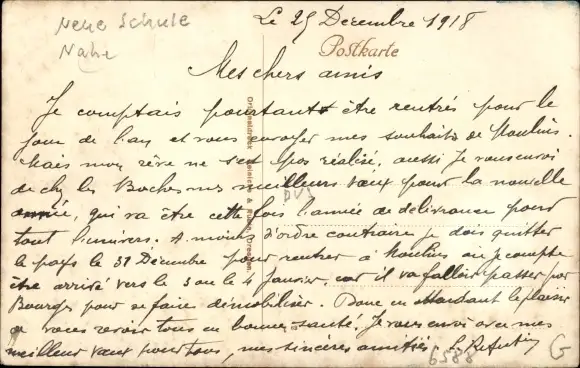 Neue Schule
Nahe
Le 25 Décembre 1918
Postkarte
Mes chers amis
Je comptais pourtant être rentrés pour le
jour de l'an et vous envoyer mes souhaits de Moulins.
Mais mon rêve ne s'est pas réalisé, aussi Je vous envoi
de chez les Boches mes meilleurs vœux pour la nouvelle
année, qui va être cette fois l'année de délivrance pour
tout l'univers. A moins d'ordre contraire je dois quitter
le pays le 31 Décembre pour rentrer à Moulins où je compte
être arrivé vers le 3 ou le 4 Janvier, car il va falloir passer par
Bourges pour se faire démobiliser. Donc en attendant le plaisir
de vous revoir tous en bonne santé. Je vous envoi avec mes
meilleur vœux pour tous, mes sincères amitiés.
6588
Originaldruck & Ruhn, Dresden.